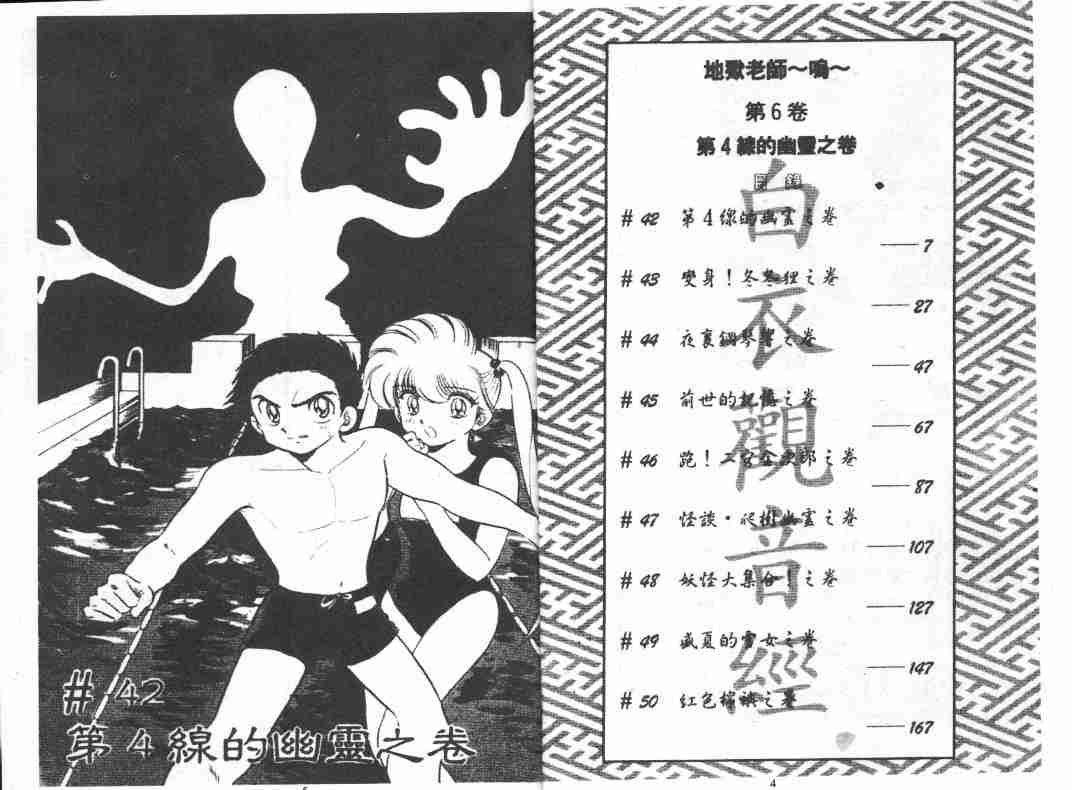 地獄老師～鳴～
第6卷
第4線的幽靈之卷
目 錄
#42 第4線的幽靈之卷
7
#43 變身！冬冬狸之卷
27
#44 夜裏鋼琴響之卷
47
#45 前世的記憶之卷
67
#46 跑！二宮金次郎之卷
87
#47 怪談·爬樹幽靈之卷
107
#48 妖怪大集合！之卷
127
#49 盛夏的雪女之卷
147
#50 紅色 之卷
167
白衣觀音經
4
#42
第4線的幽靈之卷